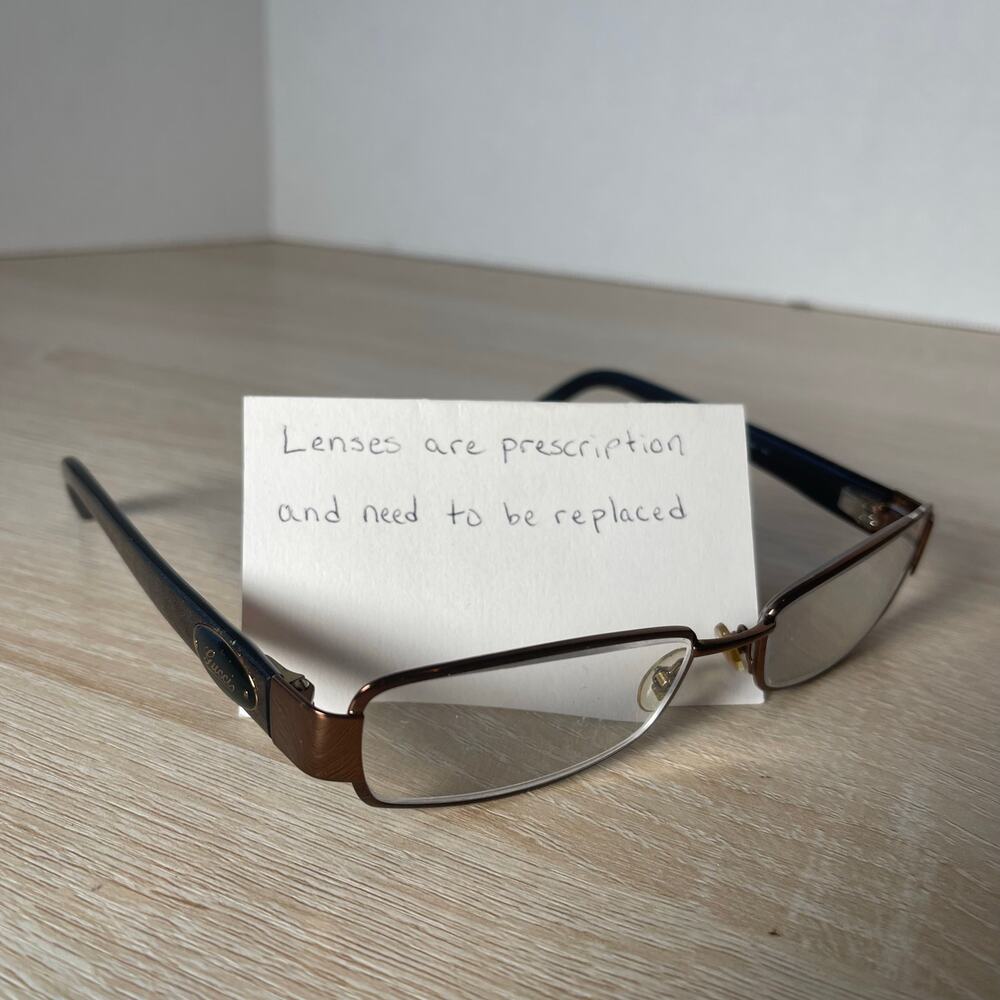 Lenses are prescription
and need to be replaced
Gucci